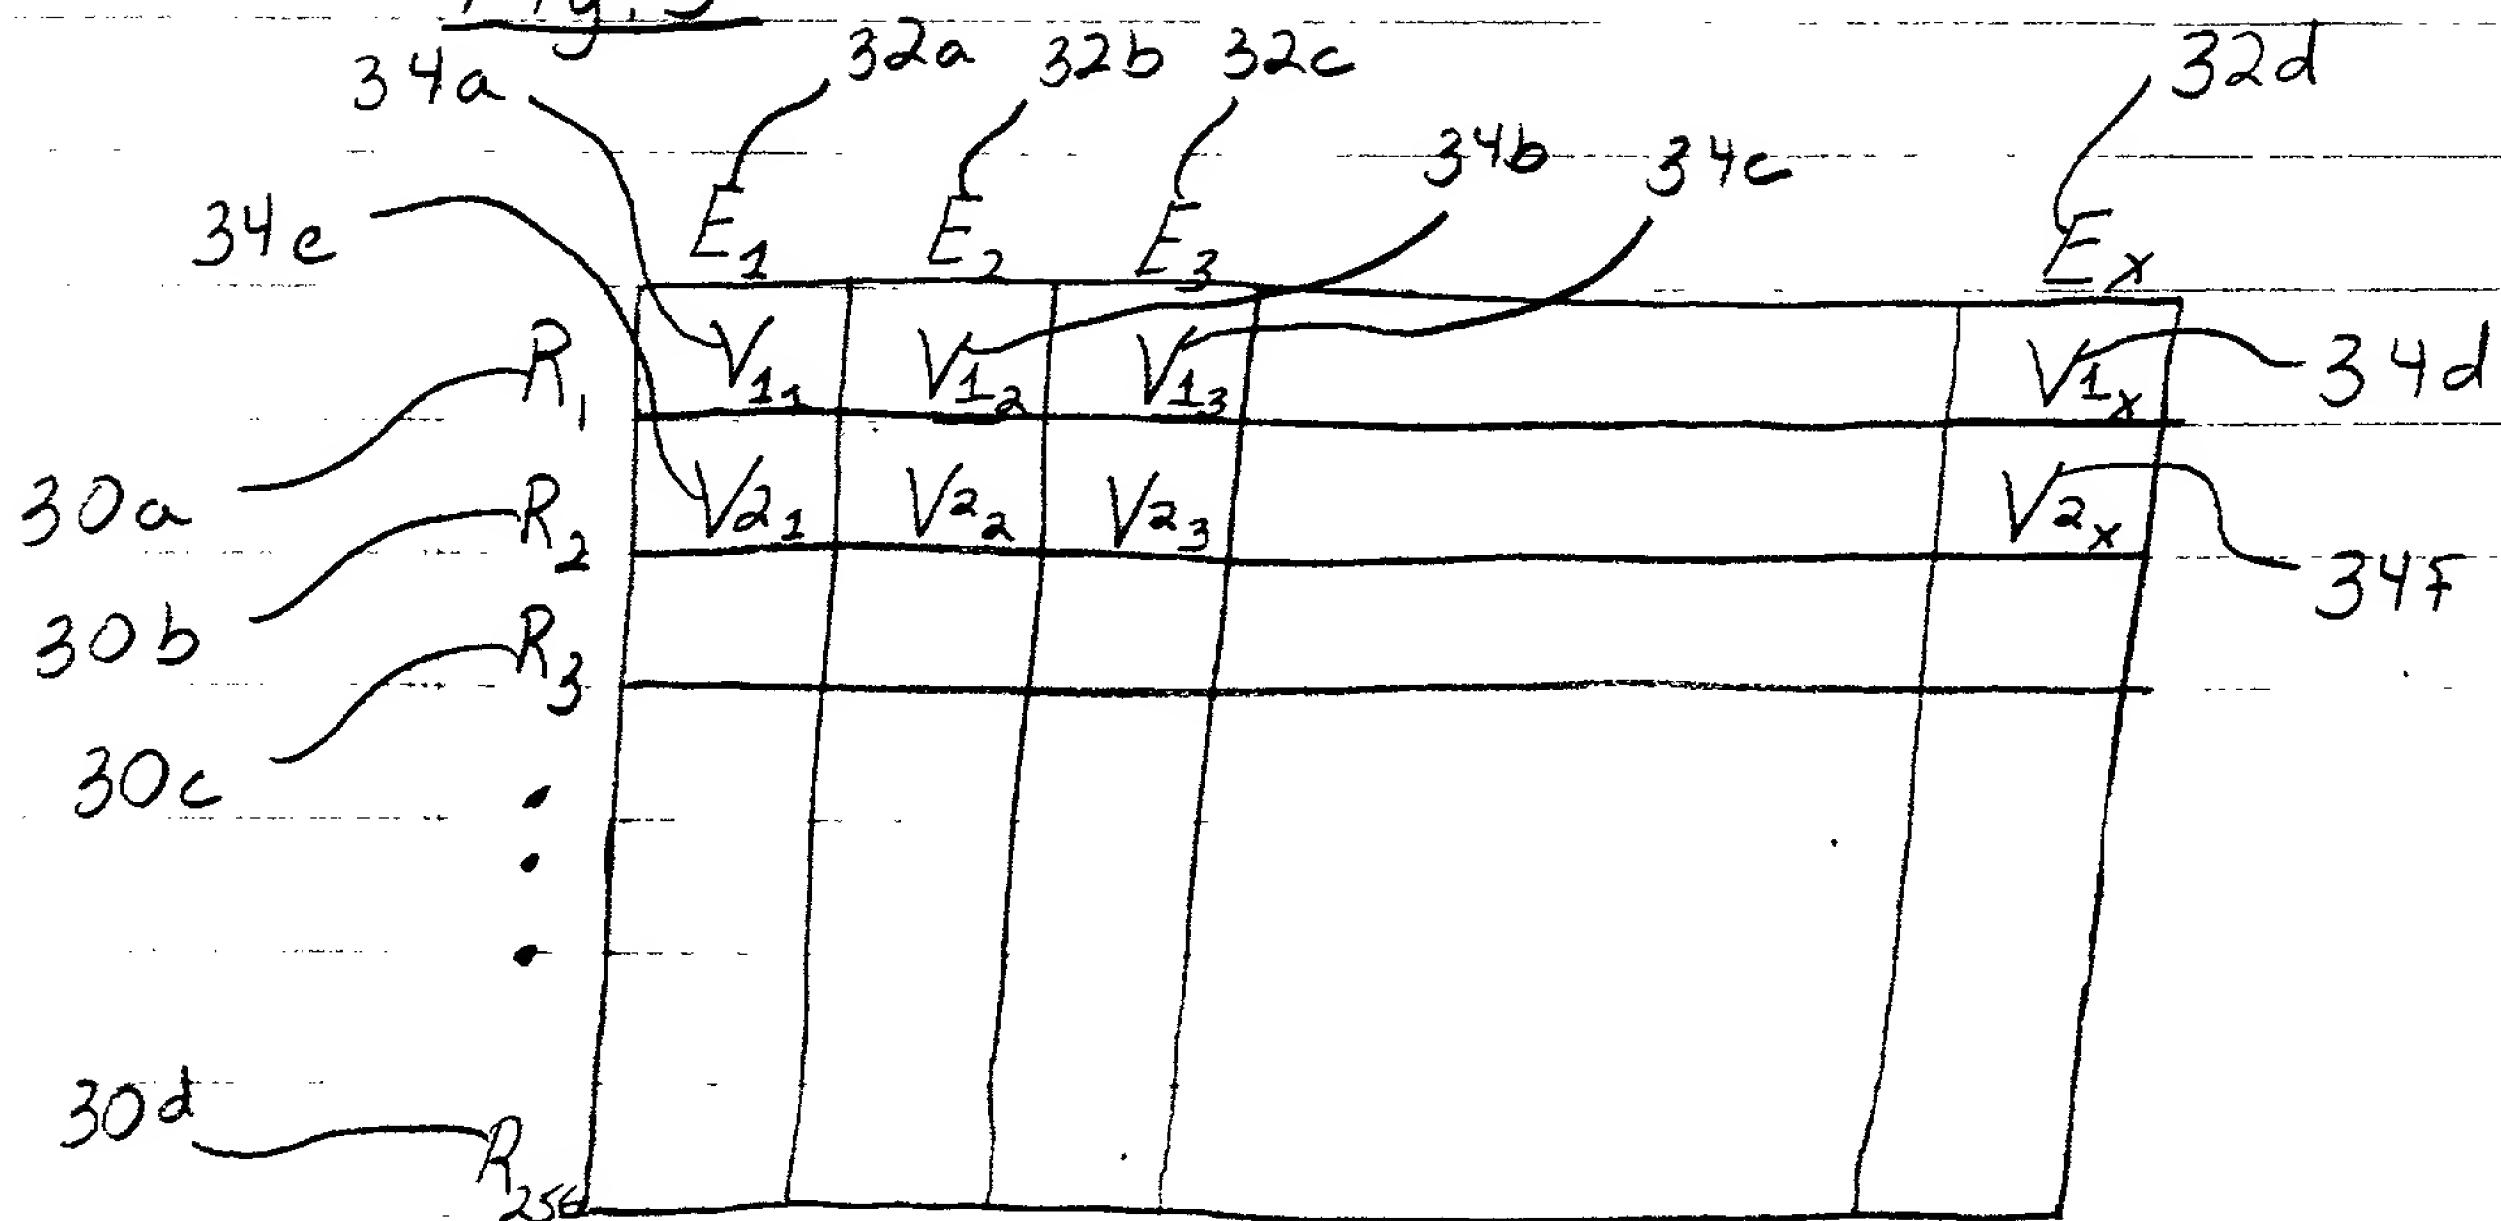 34a 32a 32b 32c 32d
34b 34c
34e E1 E2 E3 Ex
R1 V11 V12 V13 V1x 34d
30a R2 V21 V22 V23 V2x
34f
30b R3
30c
30d
R256